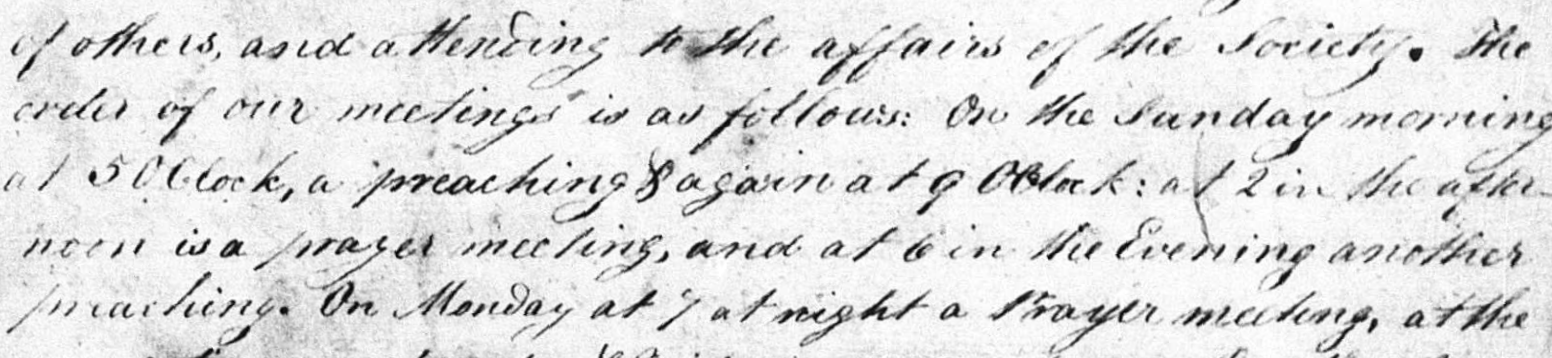 of others, and attending to the affairs of the Society. The
order of our meetings is as follows: On the Sunday morning
at 5 OClock, a preaching & again at 9 OClock: at 2 in the after-
noon is a prayer meeting, and at 6 in the Evening another
preaching. On Monday at 7 at night a Prayer meeting, at the